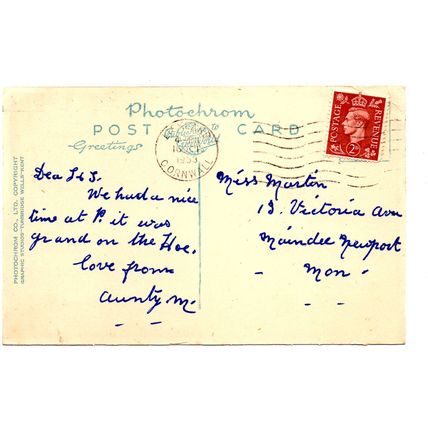 Photochrom
POST CARD
Greetings
1953
CORNWALL
POSTAGE
REVENUE
2D
PHOTOCHROM CO., LTD. COPYRIGHT
GRAPHIC STUDIOS-TUNBRIDGE WELLS-KENT
Dea L & S.
We had a nice
time at P. it was
grand on the Hoe.
love from
Aunty M.
Miss Martin
13. Victoria Avu
Maindee Newport
Mon.